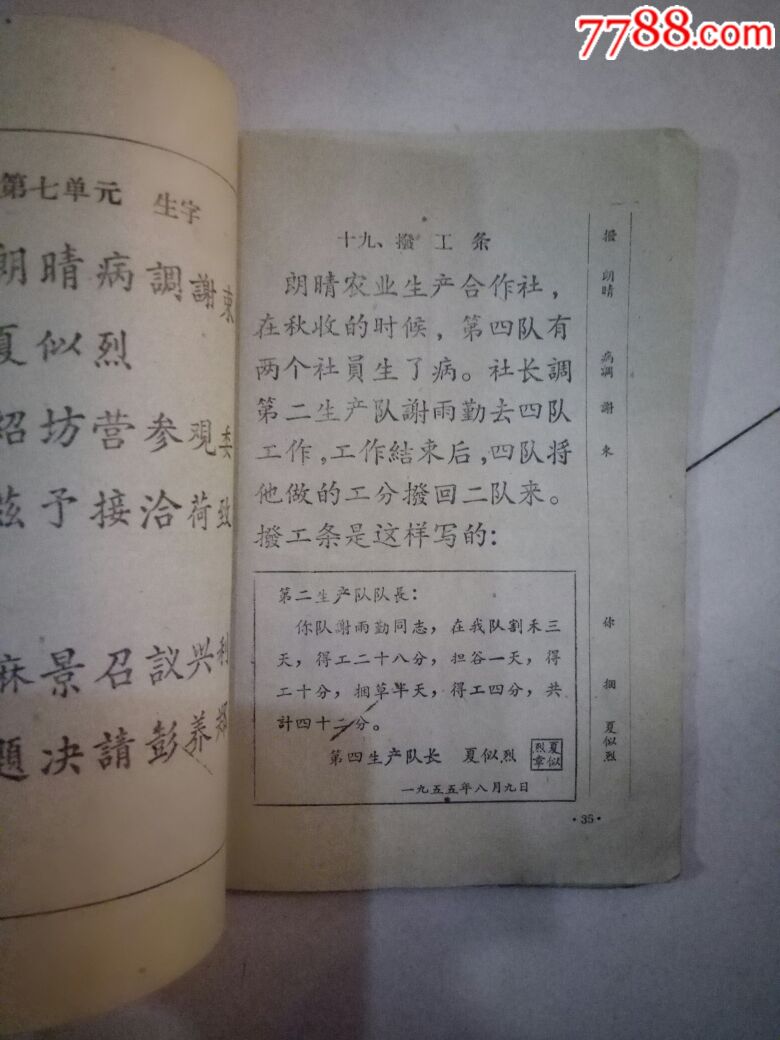 7788.com
第七单元 生字
朗晴病調謝束
夏似烈
绍坊营参观委
兹予接洽荷致
麻景召議兴利
题决請彭养
十九、撥工条
朗晴农业生产合作社，
在秋收的时候，第四队有
两个社員生了病。社长調
第二生产队謝雨勤去四队
工作，工作結束后，四队将
他做的工分撥回二队来。
撥工条是这样写的：
第二生产队队長：
你队謝雨勤同志，在我队割禾三
天，得工二十八分，担谷一天，得
工十分，捆草半天，得工四分，共
計四十二分。
第四生产队长 夏似烈
夏似烈章
一九五五年八月九日
撥 朗晴 病調 謝 束 你 捆 夏似烈
·35·